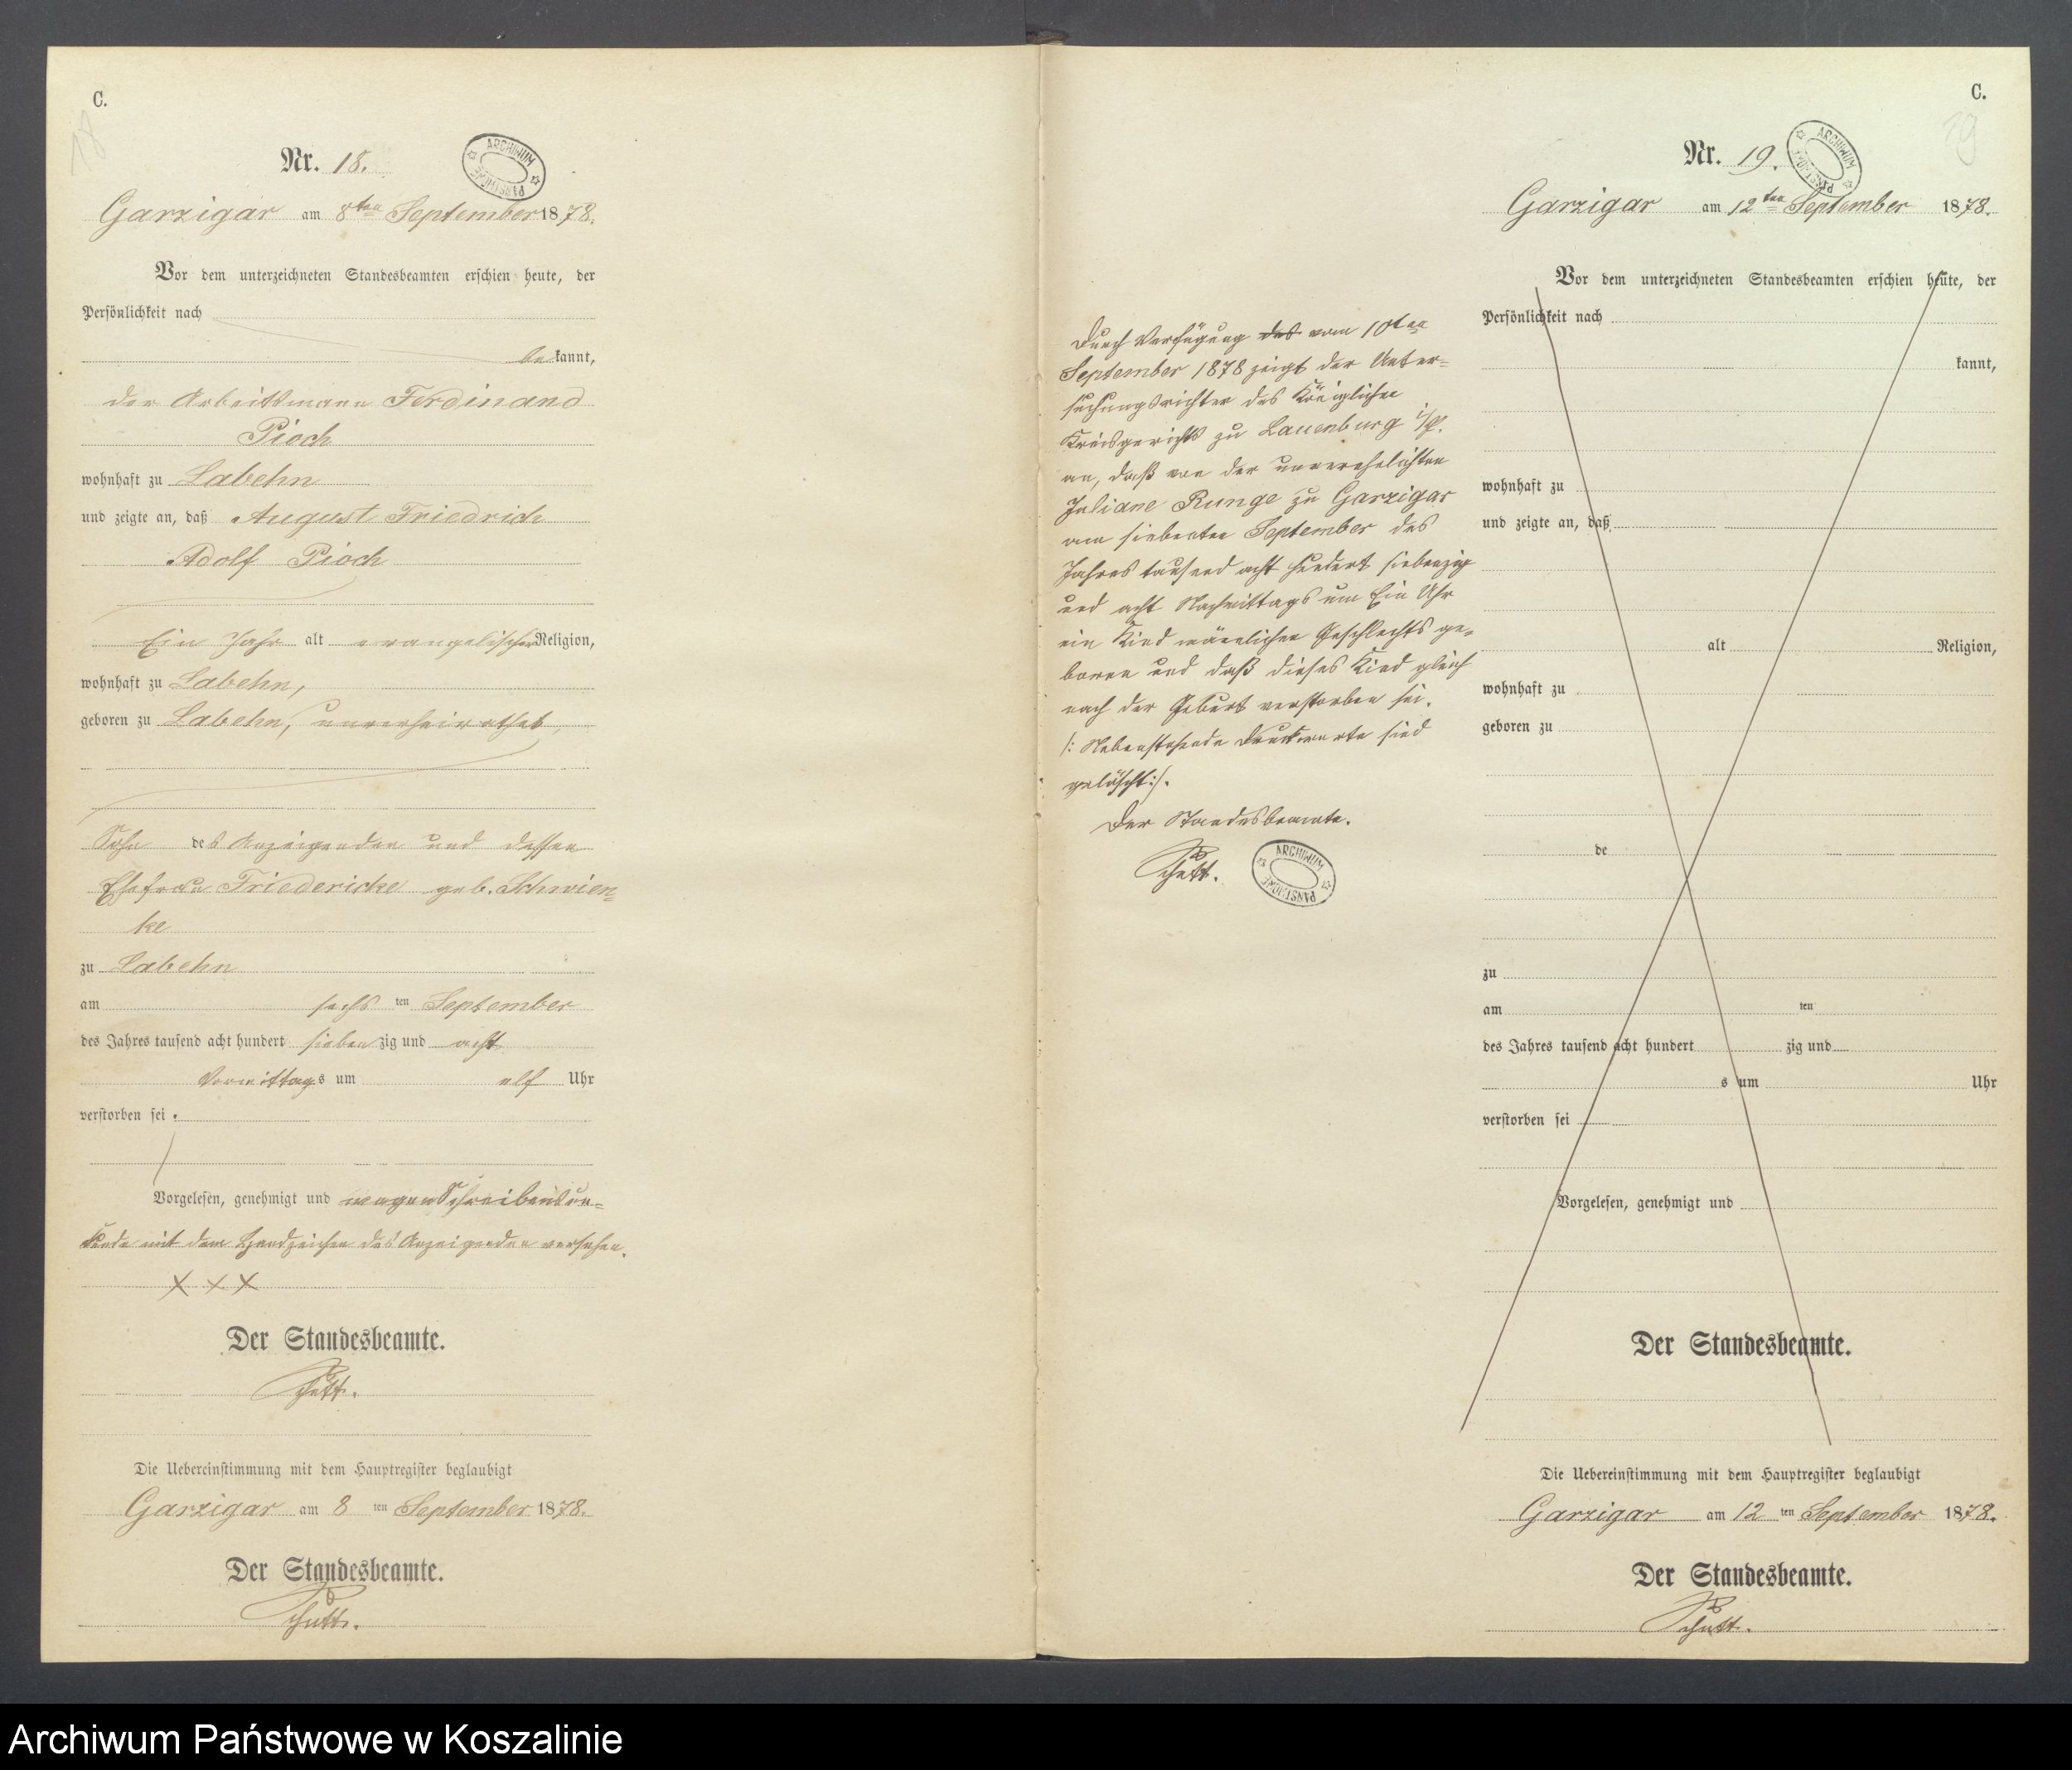 C.
18
Nr. 18.
ARCHIWUM PAŃSTWOWE
Garzigar am 8ten September 1878.
Vor dem unterzeichneten Standesbeamten erschien heute, der
Persönlichkeit nach
bekannt,
der Arbeitsmann Ferdinand
Pioch
wohnhaft zu Labehn
und zeigte an, daß August Friedrich
Adolf Pioch
Ein Jahr alt evangelischer Religion,
wohnhaft zu Labehn,
geboren zu Labehn, unverheirathet,
Sohn des Anzeigenden und dessen
Ehefrau Friedericke geb. Schwien=
ke
zu Labehn
am sechsten September
des Jahres tausend acht hundert siebenzig und acht
Vormittags um elf Uhr
verstorben sei.
Vorgelesen, genehmigt und wegen Schreibensun=
kunde mit dem Handzeichen des Anzeigenden versehen.
X X X
Der Standesbeamte.
Schütt.
Die Uebereinstimmung mit dem Hauptregister beglaubigt
Garzigar am 8ten September 1878.
Der Standesbeamte.
Schütt.
Durch Verfügung des vom 10ten
September 1878 zeigt der Unter=
suchungsrichter des Königlichen
Kreisgerichts zu Lauenburg i/p.
an, daß von der unverehelichten
Juliane Runge zu Garzigar
am siebenten September des
Jahres tausend acht hundert siebenzig
und acht Nachmittags um Ein Uhr
ein Kind männlichen Geschlechts ge=
boren und daß dieses Kind gleich
nach der Geburt verstorben sei.
/: Nebenstehende Druckworte sind
gelöscht :/.
Der Standesbeamte.
Schütt.
ARCHIWUM PAŃSTWOWE
C.
19
Nr. 19.
ARCHIWUM PAŃSTWOWE
Garzigar am 12ten September 1878.
Vor dem unterzeichneten Standesbeamten erschien heute, der
Persönlichkeit nach
kannt,
wohnhaft zu
und zeigte an, daß
alt Religion,
wohnhaft zu
geboren zu
de
zu
am ten
des Jahres tausend acht hundert zig und
s um Uhr
verstorben sei
Vorgelesen, genehmigt und
Der Standesbeamte.
Die Uebereinstimmung mit dem Hauptregister beglaubigt
Garzigar am 12ten September 1878.
Der Standesbeamte.
Schütt.
Archiwum Państwowe w Koszalinie